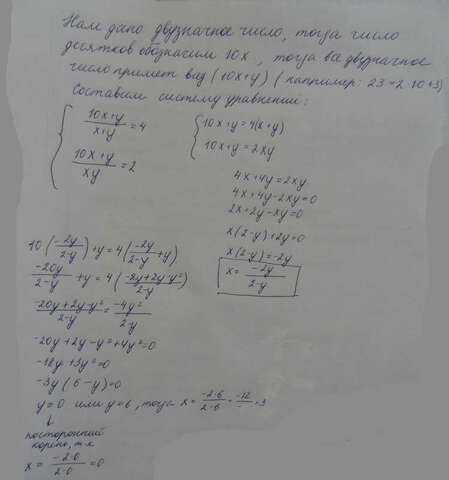 Нам дано двузначное число, тогда число
десятков обозначим 10x, тогда все двузначное
число примет вид (10x+y) (например: 23=2·10+3)
Составим систему уравнений:
{ (10x+y)/(x+y) = 4
(10x+y)/(xy) = 2
{ 10x+y=4(x+y)
10x+y=2xy
4x+4y=2xy
4x+4y-2xy=0
2x+2y-xy=0
x(2-y)+2y=0
x(2-y)=-2y
x = (-2y)/(2-y)
10((-2y)/(2-y))+y=4((-2y)/(2-y)+y)
(-20y)/(2-y)+y=4((-2y+2y-y²)/(2-y))
(-20y+2y-y²)/(2-y)=(-4y²)/(2-y)
-20y+2y-y²+4y²=0
-18y+3y²=0
-3y(6-y)=0
y=0 или y=6, тогда x=(-2·6)/(2-6)=(-12)/-=3
↓
посторонний
корень, т.к
x = (-2·0)/(2-0)=0